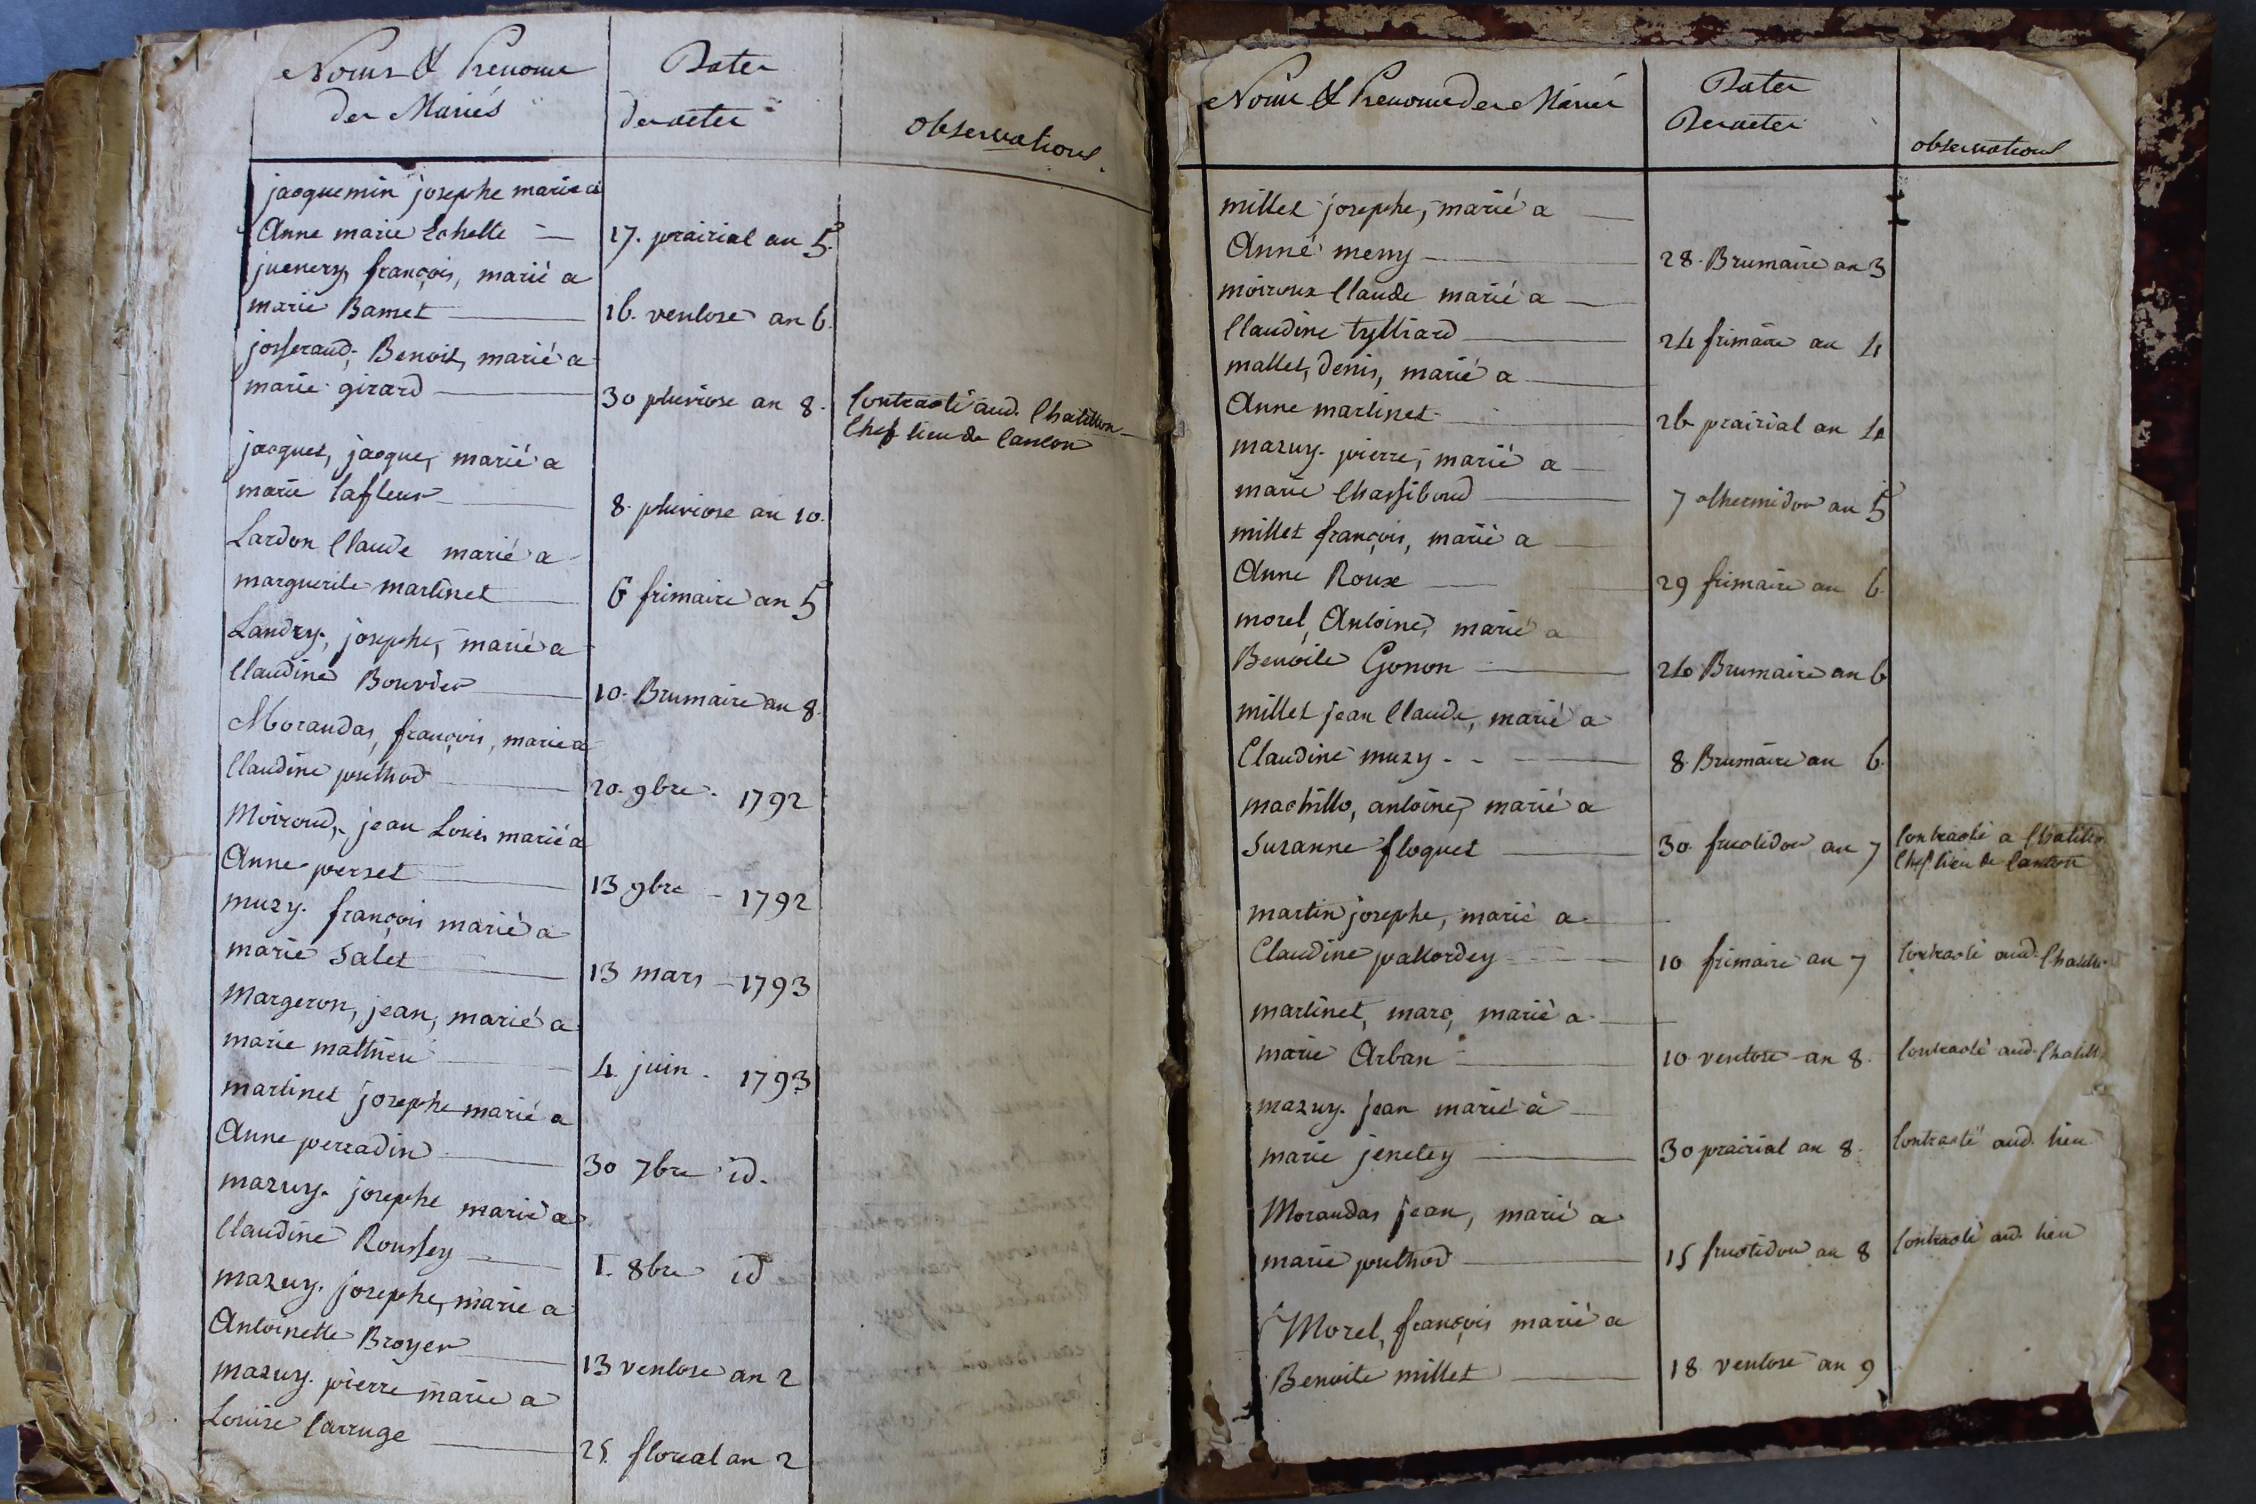 Noms & Prenoms
des Mariés
Dates
des actes
observations.
jacquemin josephe marié a
Anne marie Echelle
17. prairial an 5
juenery, françois, marié a
marie Bamet
16. ventose an 6.
josserand, Benoit, marié a
marie girard
30 pluviose an 8.
Contracté aud. Chatillon
Chef lieu de Canton
jacques, jacque, marié a
marie lafleur
8. pluviose an 10.
Lardon Claude marié a
marguerite martinet
6 frimaire an 5
Landry, josephe, marié a
Claudine Bouvier
10. Brumaire an 8.
Morandas, françois, marié a
Claudine puthod
20. 9bre. 1792
Moiroud, jean Louis marié a
Anne perset
13 9bre 1792
muzy. françois marié a
marie salet
13 mars 1793
Margeron, jean, marié a
marie mathieu
4 juin. 1793
martinet josephe marié a
Anne perradin
30 7bre id.
mazuy. josephe marié a
Claudine Roussey
1. 8bre id
mazuy. josephe, marié a
Antoinette Broyer
13 ventose an 2
mazuy. pierre marié a
Louise Carruge
25 floreal an 2
Noms & Prenoms des Mariés
Dates
Des actes
observations
millet josephe, marié a
Anne meny
28. Brumaire an 3
moiroux Claude marié a
Claudine
24 frimaire an 4
mallet, denis, marié a
Anne martinet
26 prairial an 4
mazuy. pierre, marié a
marie Chassiboud
7 thermidor an 5
millet françois, marié a
Anne Roux
29 frimaire an 6.
morel, Antoine, marié a
Benoite Gonon
Brumaire an 6
millet jean Claude, marié a
Claudine muzy
8. Brumaire an 6.
machillo, antoine, marié a
Suzanne floquet
30. fructidor an 7
Contracté a Chatillon
Chef lieu de Canton
martin josephe, marié a
Claudine pattordey
10 frimaire an 7
Contracté aud. Chatillon
martinet, marc, marié a
marie Arban
10 ventose an 8.
Contracté aud. Chatill
mazuy. jean marié à
marie jeneley
30 prairial an 8.
Contracté aud. lieu
Morandas jean, marié a
marie puthod
15 fructidor an 8
Contracté aud. lieu
Morel, françois marié a
Benoite millet
18 ventose an 9